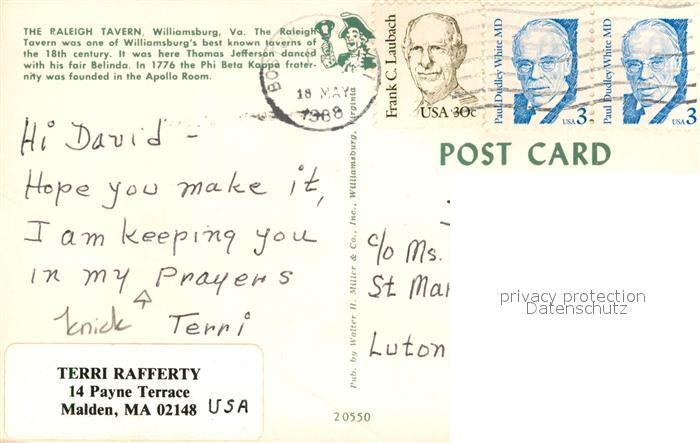 THE RALEIGH TAVERN, Williamsburg, Va. The Raleigh
Tavern was one of Williamsburg's best known taverns of
the 18th century. It was here Thomas Jefferson danced
with his fair Belinda. In 1776 the Phi Beta Kappa frater-
nity was founded in the Apollo Room.
BO
18 MAY
1988
Frank C. Laubach
USA 30c
Paul Dudley White MD
USA 3
Paul Dudley White MD
USA 3
POST CARD
Hi David -
Hope you make it,
I am keeping you
in my Prayers
knick Terri
TERRI RAFFERTY
14 Payne Terrace
Malden, MA 02148 USA
Pub. by Walter H. Miller & Co., Inc., Williamsburg, Virginia
c/o Ms.
St Mar
Luton
20550
privacy protection
Datenschutz